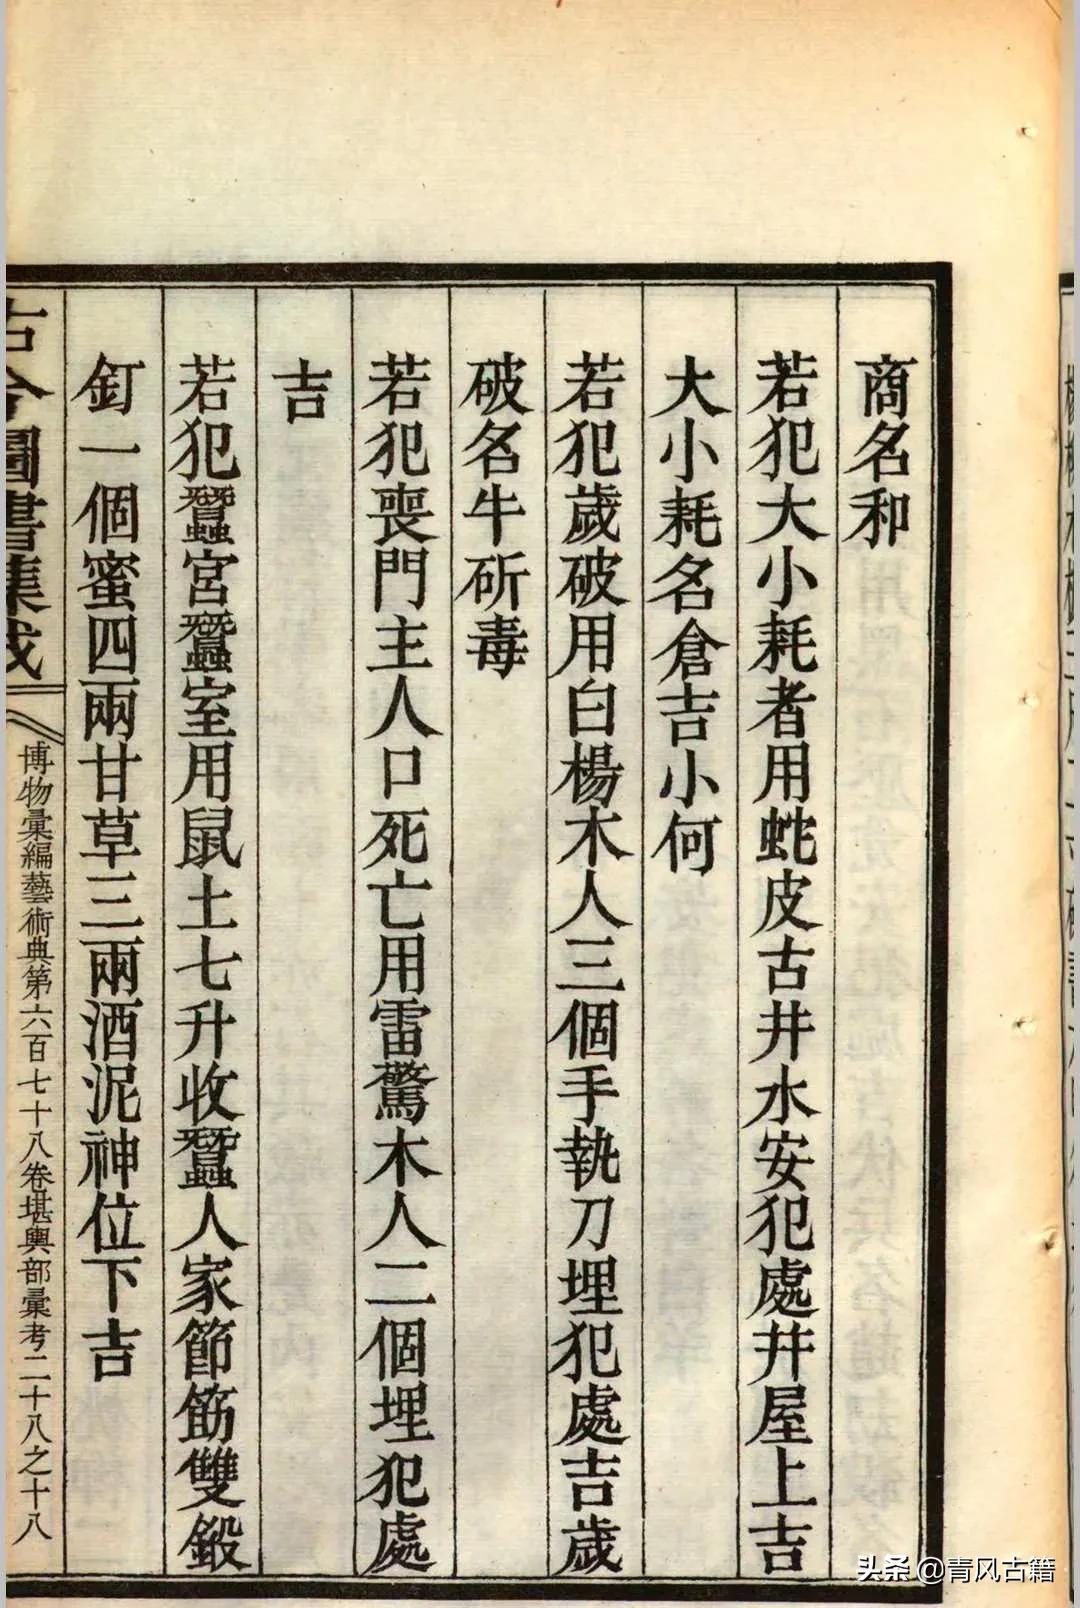 商名和
若犯大小耗者用蛇皮古井水安犯處井屋上吉
大小耗名倉吉小何
若犯歲破用白楊木人三個手執刀埋犯處吉歲
破名牛斫毒
若犯喪門主人口死亡用雷驚木人二個埋犯處
吉
若犯蠶宮蠶室用鼠土七升收蠶人家節筯雙鍛
釘一個蜜四兩甘草三兩酒泥神位下吉
古今圖書集成
博物彙編藝術典第六百七十八卷堪輿部彙考二十八之十八
头条@青风古籍